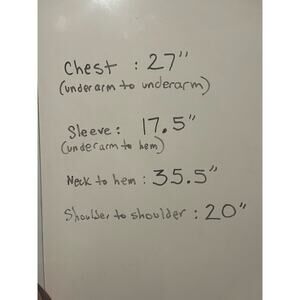 Chest : 27"
(underarm to underarm)
Sleeve : 17.5"
(underarm to hem)
Neck to hem : 35.5"
Shoulder to shoulder : 20"